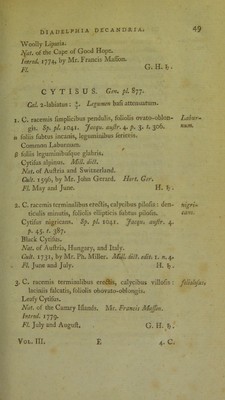 DIADELPHIA DECANDRIA. 49
Woolly Liparia.
Nat. of the Cape of Good Hope.
Introd. 1774, by Mr. Francis Masson.
Fl. G. H. ♄.
CYTISUS. Gen. pl. 877.
Cal. 2-labiatus: ⅔. Legumen basi attenuatum.
1. C. racemis simplicibus pendulis, foliolis ovato-oblon- Labur-
gis. Sp. pl. 1041. Jacqu. austr. 4. p. 3. t. 306. num.
α foliis subtus incanis, leguminibus sericeis.
Common Laburnum.
β foliis leguminibusque glabris.
Cytisus alpinus. Mill. dict.
Nat. of Austria and Switzerland.
Cult. 1596, by Mr. John Gerard. Hort. Ger.
Fl. May and June. H. ♄.
2. C. racemis terminalibus erectis, calycibus pilosis: den- nigri-
ticulis minutis, foliolis ellipticis subtus pilosis. cans.
Cytisus nigricans. Sp. pl. 1041. Jacqu. austr. 4.
p. 45. t. 387.
Black Cytisus.
Nat. of Austria, Hungary, and Italy.
Cult. 1731, by Mr. Ph. Miller. Mill. dict. edit. 1. n. 4.
Fl. June and July. H. ♄.
3. C. racemis terminalibus erectis, calycibus villosis: foliolosus.
laciniis falcatis, foliolis obovato-oblongis.
Leafy Cytisus.
Nat. of the Canary Islands. Mr. Francis Masson.
Introd. 1779.
Fl. July and August. G. H. ♄.
VOL. III. E 4. C.